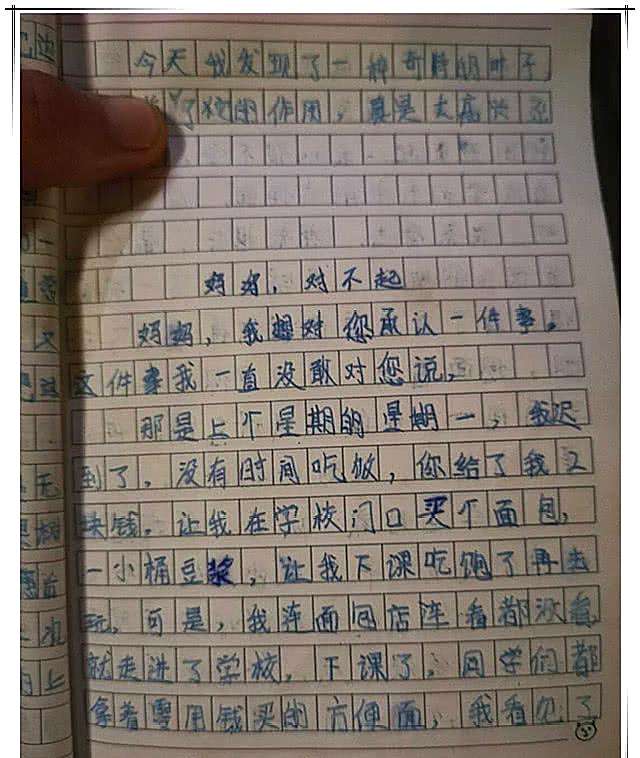 今天我发现了一种奇特的叶子
了它的作用，真是太高兴了
妈妈，对不起
妈妈，我想对您承认一件事。
这件事我一直没敢对您说，
那是上个星期的星期一，我迟
到了，没有时间吃饭，你给了我2
块钱，让我在学校门口买个面包，
一小桶豆浆，让我下课吃饱了再去
玩，可是，我连面包店连看都没看，
就走进了学校，下课了，同学们都
拿着零用钱买的方便面，我看见了